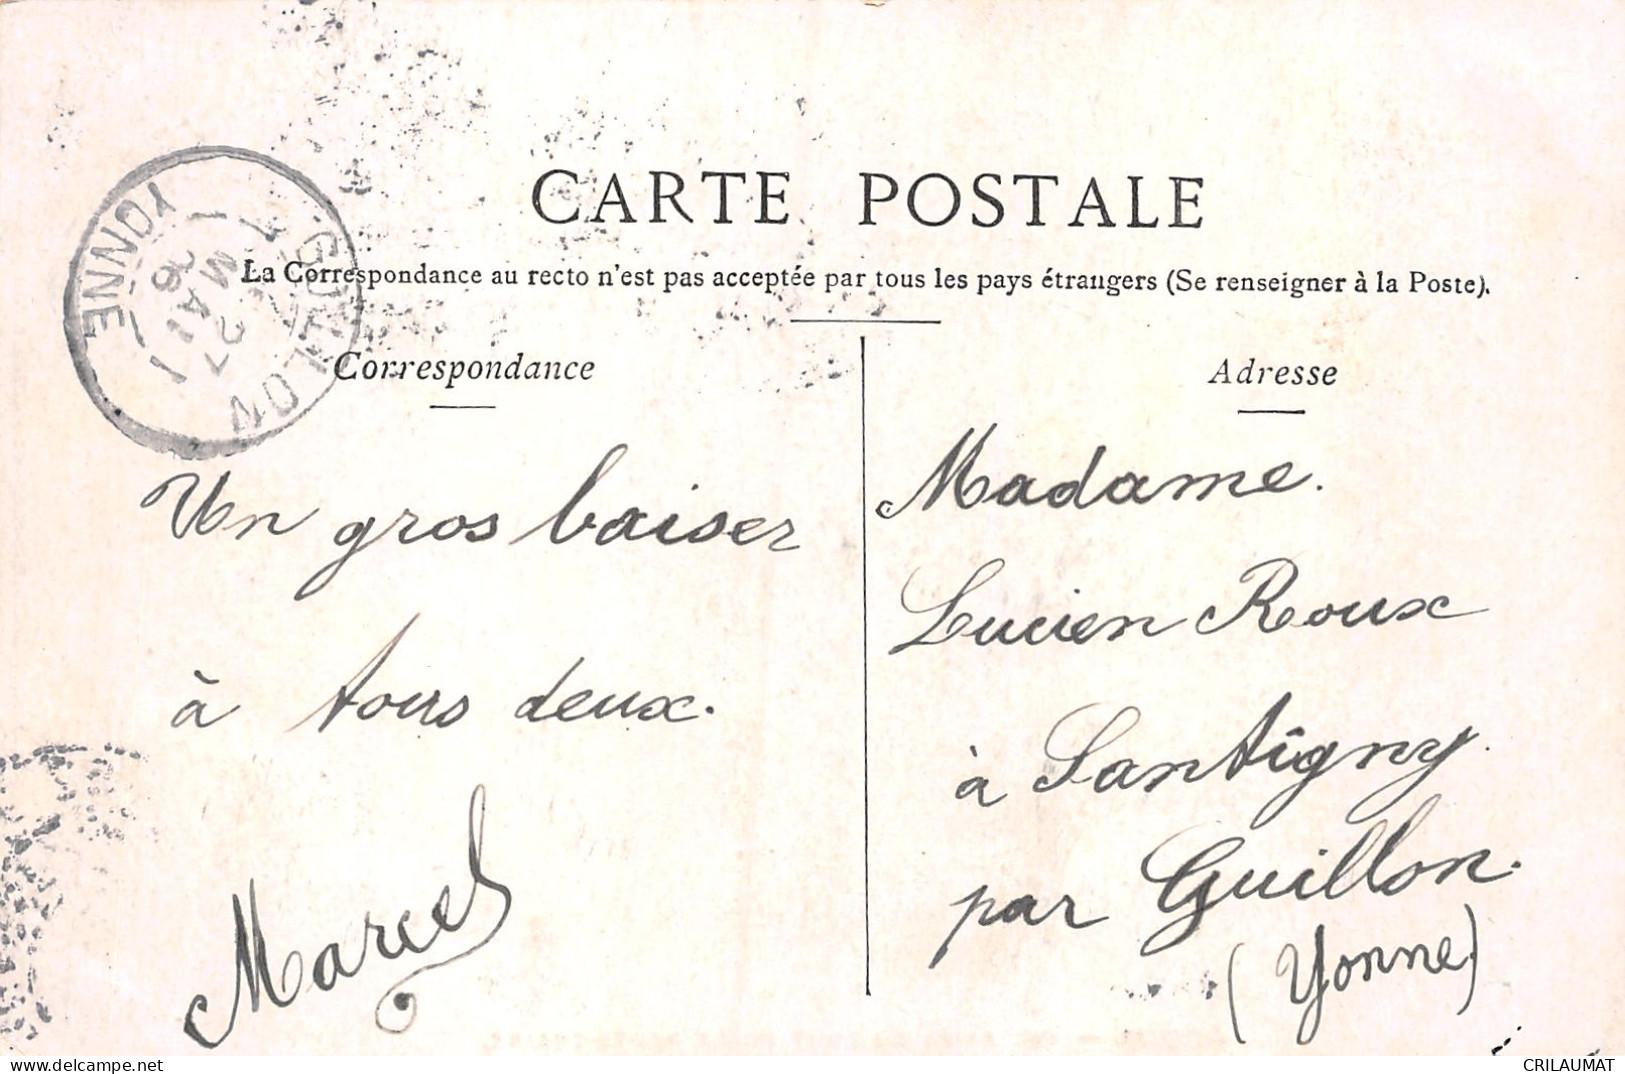 CARTE POSTALE
La Correspondance au recto n'est pas acceptée par tous les pays étrangers (Se renseigner à la Poste).
Correspondance
Adresse
GUILLON
YONNE
MAI
Un gros baiser
à tous deux.
Marcel
Madame.
Lucien Roux
à Santigny
par Guillon.
(Yonne)
CRILAUMAT